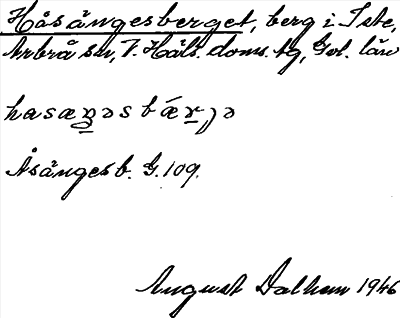 Håsängesberget, berg i Iste,
Arbrå sn, V. Häls. doms. tg, Gvl. län
Åsängesb. G. 109.
August Dalhem 1946